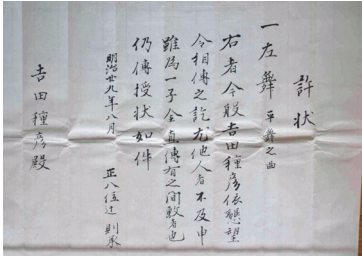 許状
一左舞 平舞之曲
右者今般吉田種彦依懇望
令相傳之訖尤他人者不及申
雖為一子全直傳有之間敷者也
仍傳授状如件
明治廿九年八月 正八位辻則承
吉田種彦殿